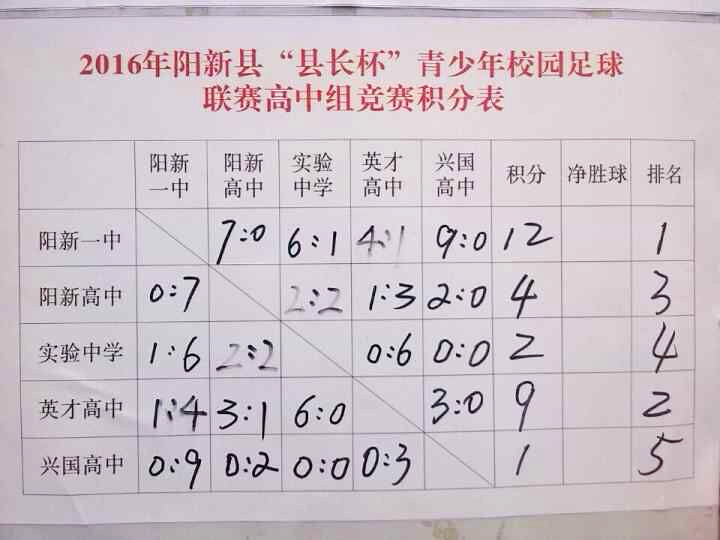 2016年阳新县“县长杯”青少年校园足球
联赛高中组竞赛积分表
阳新一中 阳新高中 实验中学 英才高中 兴国高中 积分 净胜球 排名
阳新一中 7:0 6:1 4:1 9:0 12 1
阳新高中 0:7 2:2 1:3 2:0 4 3
实验中学 1:6 2:2 0:6 0:0 2 4
英才高中 1:4 3:1 6:0 3:0 9 2
兴国高中 0:9 0:2 0:0 0:3 1 5